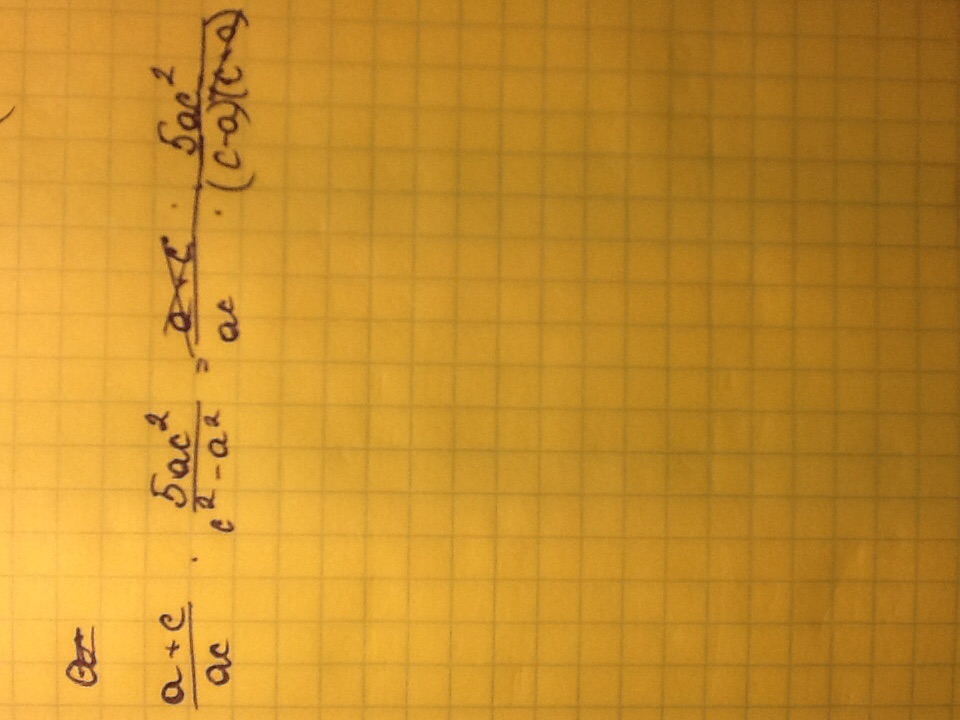 a+c/ac · 5ac²/c²-a² = a+c · 5ac²/ac · (c-a)(c+a)